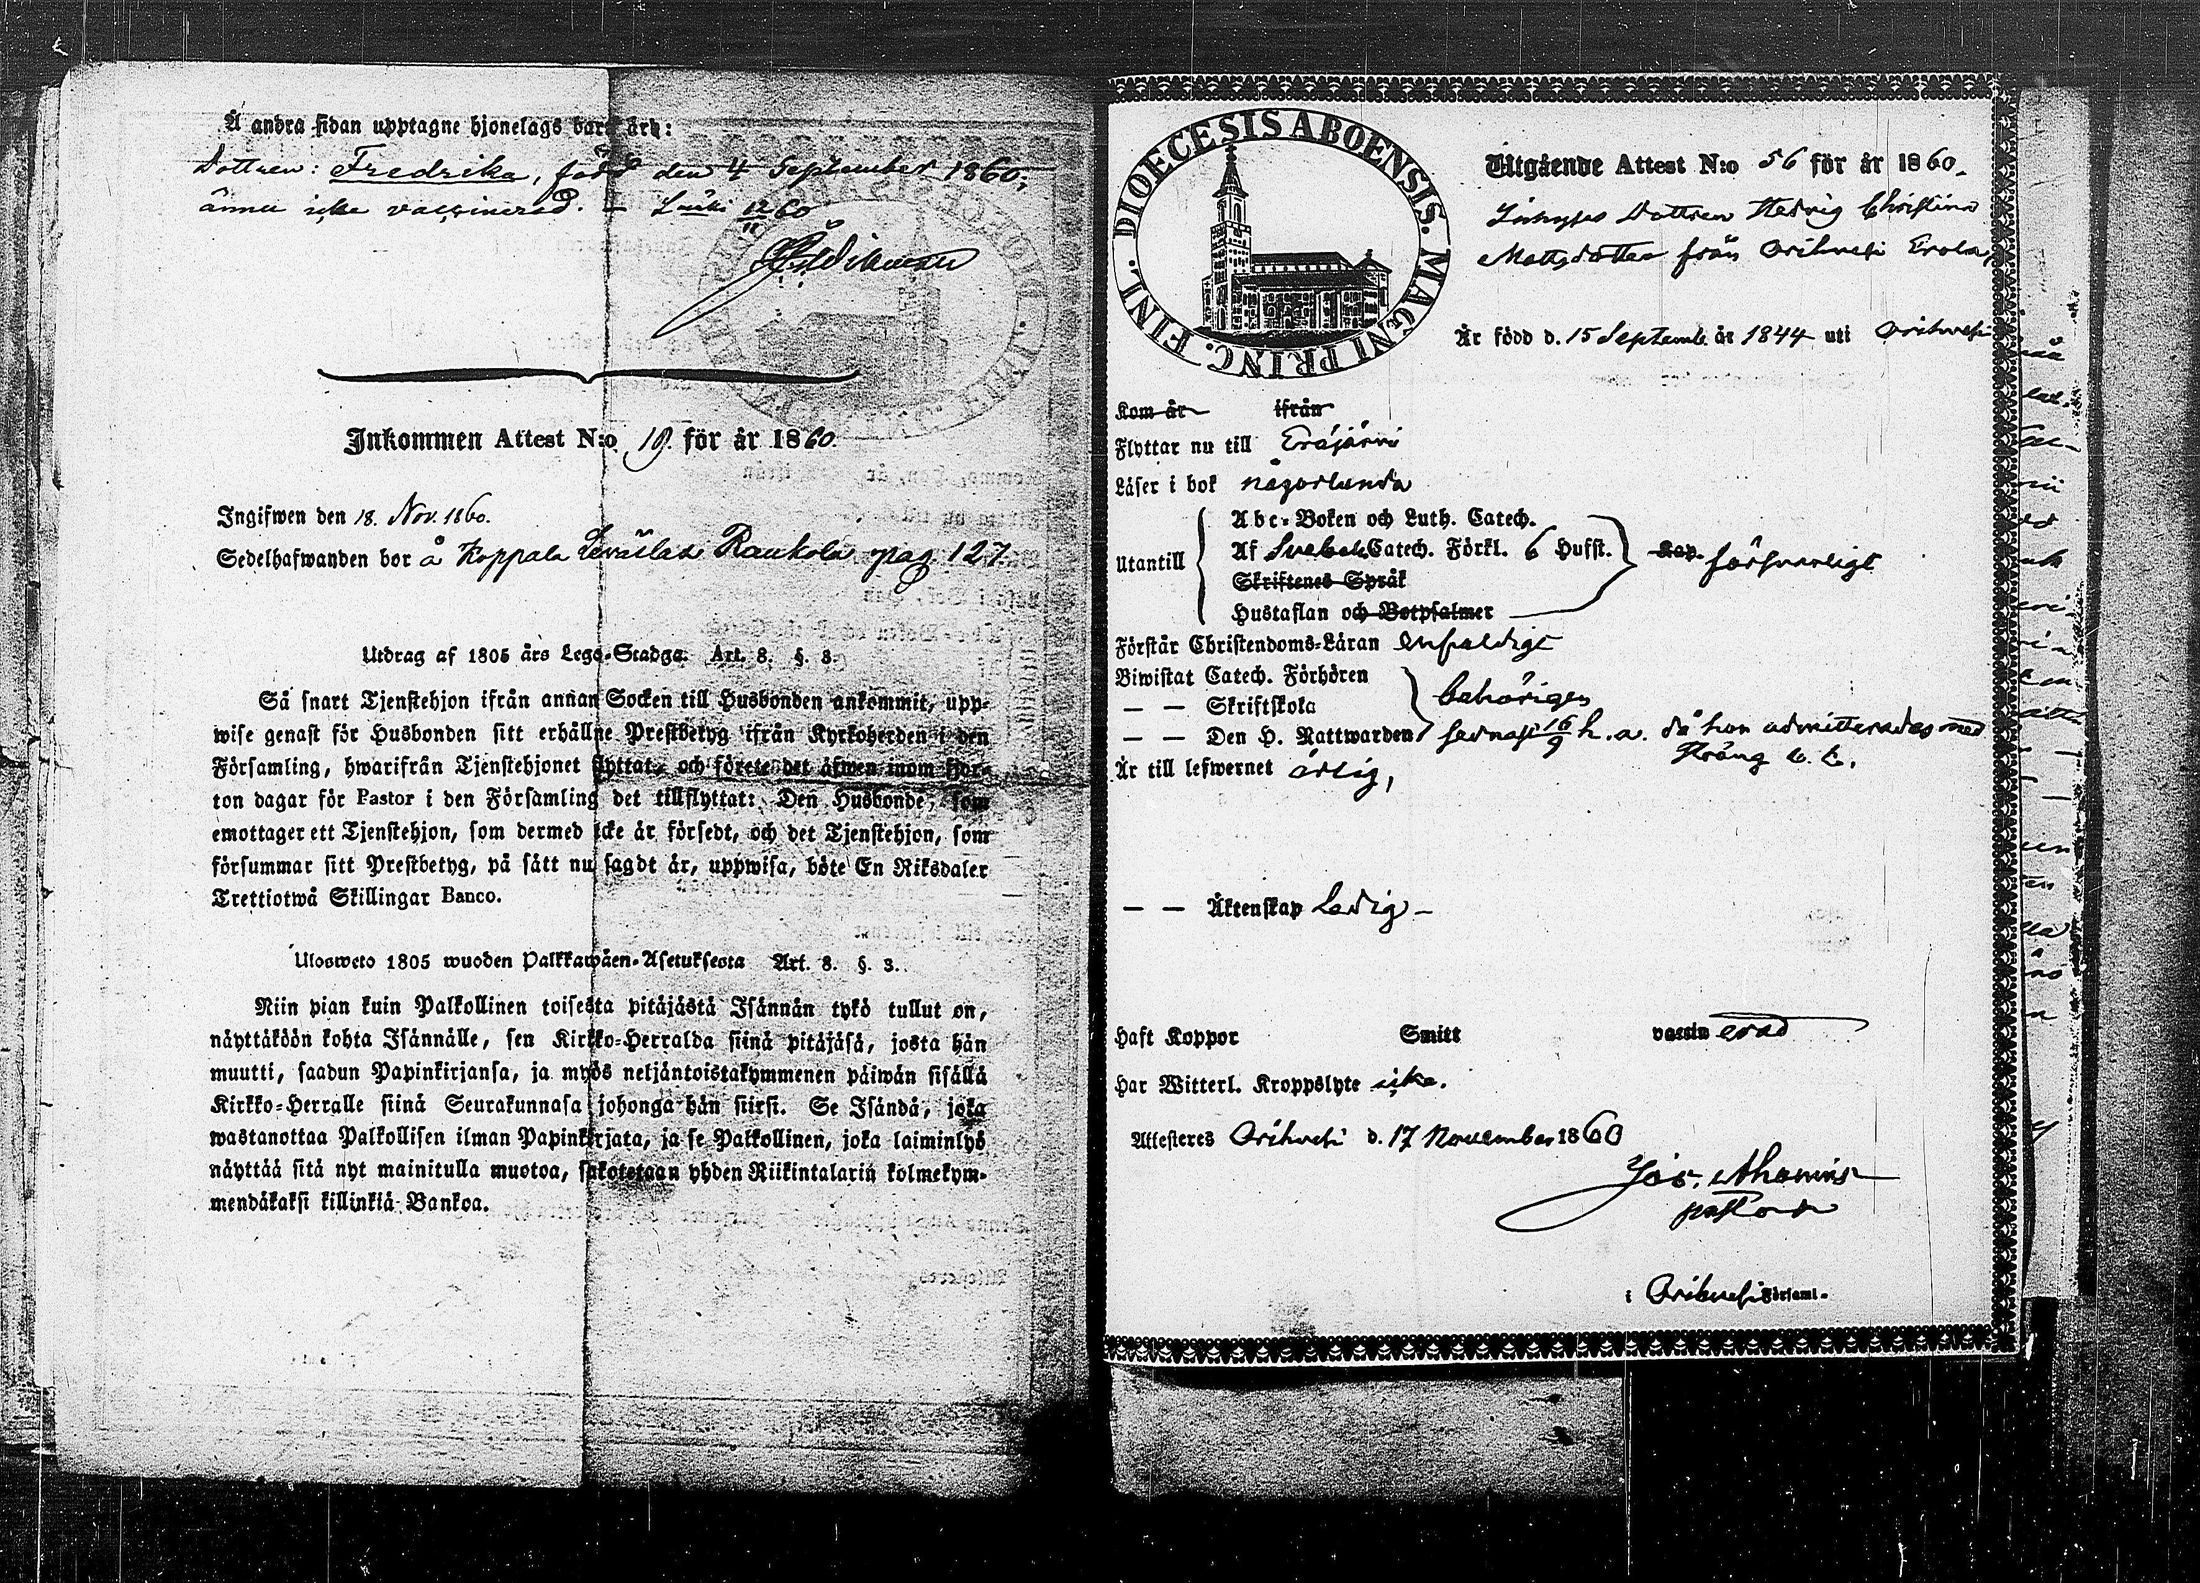 Å andra sidan upptagne hjonelags barn äro:
Dottren: Fredrika, född den 4 September 1860,
ännu icke vaccinerad. —
Inkommen Attest N:o 19. för år 1860.
Ingifwen den 18. Nov. 1860.
Sedelhafwanden bor å Koppala Raukola pag. 127.
Utdrag af 1805 års Lego-Stadga. Art. 8. §. 3.
Så snart Tjenstehjon ifrån annan Socken till Husbonden ankommit, upp-
wise genast för Husbonden sitt erhållne Prestbetyg ifrån Kyrkoherden i den
Församling, hwarifrån Tjenstehjonet flyttat, och förete det äfwen inom fjor-
ton dagar för Pastor i den Församling det tillflyttat: Den Husbonde, som
emottager ett Tjenstehjon, som dermed icke är försedt, och det Tjenstehjon, som
försummar sitt Prestbetyg, på sätt nu sagdt är, uppwisa, böte En Riksdaler
Trettiotwå Skillingar Banco.
Ulosweto 1805 wuoden Palkkawäen-Asetuksesta Art. 8. §. 3.
Niin pian kuin Palkollinen toisesta pitäjästä Isännän tykö tullut on,
näyttäköön kohta Isännälle, sen Kirkko-Herralda siinä pitäjäsä, josta hän
muutti, saadun Papinkirjansa, ja myös neljäntoistakymmenen päiwän sisällä
Kirkko-Herralle siinä Seurakunnasa johonga hän siirsi. Se Isändä, joka
wastanottaa Palkollisen ilman Papinkirjata, ja se Palkollinen, joka laiminlyö
näyttää sitä nyt mainitulla muotoa, sakotetaan yhden Riikintalarin kolmekym-
mendäkaksi killinkiä Bankoa.
DIOECESIS ABOENSIS. MAGNI PRINC. FINL.
Utgående Attest N:o 56 för år 1860.
Inhyses Dottren Hedvig Christina
Mattsdotter från Orihvesi Erola,
Är född d. 15 Septemb. år 1844 uti Orihvesi
Kom år ifrån
Flyttar nu till Eräjärvi
Läser i bok någorlunda
Utantill
Abc-Boken och Luth. Catech.
Af Svebel. Catech. Förkl. 6 Hufst. Kap. försvarligt
Skriftenes Språk
Hustaflan och Botpsalmer
Förstår Christendoms-Läran enfaldigt
Biwistat Catech. Förhören
— — Skriftskola behörigen
— — Den H. Nattwarden sednast 16/9 h. a. då hon admitterades med
Är till lefwernet ärlig,
— — Äktenskap Ledig —
Haft Koppor Smitt vaccinerad
Har Witterl. Kroppslyte icke.
Attesteres Orihvesi d. 17 November 1860
Jos. Ahonius
pastor
i Orihvesi Församl.